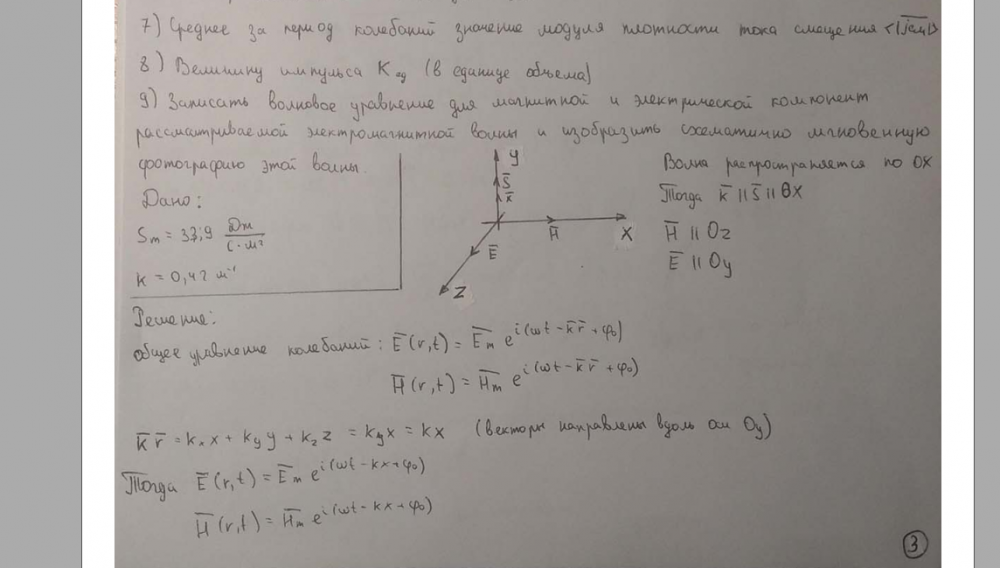 7) Среднее за период колебаний значение модуля плотности тока смещения <|j̅см|>
8) Величину импульса Kед (в единице объема)
9) Записать волновое уравнение для магнитной и электрической компонент
рассматриваемой электромагнитной волны и изобразить схематично мгновенную
фотографию этой волны.
Дано:
Sm = 33,9 Дж/(с·м²)
k = 0,42 м⁻¹
y
S̅
k̅
H̅
X
E̅
Z
Волна распространяется по OX
Тогда k̅ || S̅ || OX
H̅ || Oz
E̅ || Oy
Решение:
общее уравнение колебаний: E̅(r,t) = E̅m e^i(ωt - k̅r̅ + φ₀)
H̅(r,t) = H̅m e^i(ωt - k̅r̅ + φ₀)
k̅r̅ = kₓx + kyy + kzz = kyx = kx (векторы направлены вдоль оси Oy)
Тогда E̅(r,t) = E̅m e^i(ωt - kx + φ₀)
H̅(r,t) = H̅m e^i(ωt - kx + φ₀)
3